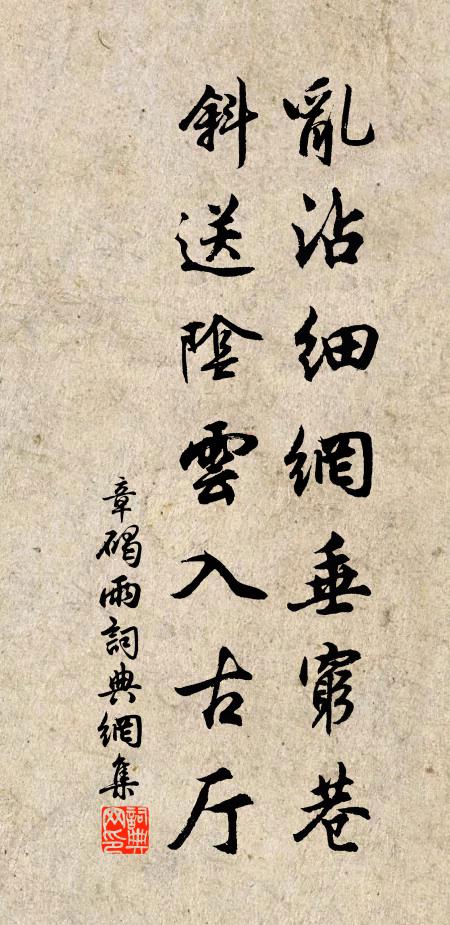 亂沾細網垂窮巷
斜送陰雲入古厅
章碣雨詞典網集
詞典网印